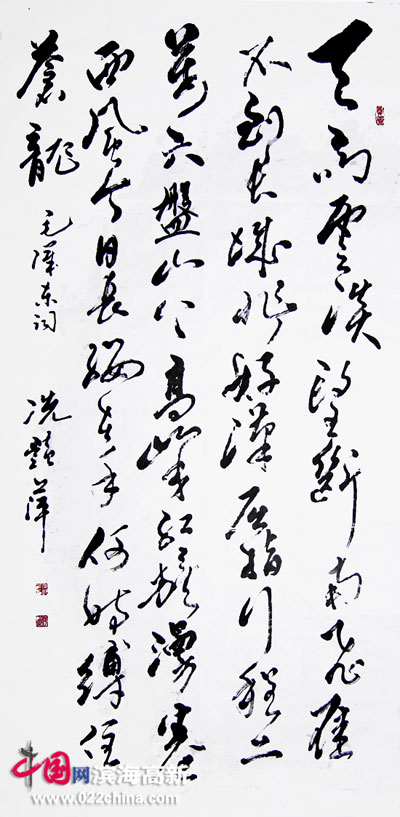 天高雲淡望斷南飛雁
不到長城非好漢屈指行程二
萬六盤山上高峯紅旗漫卷
西風今日長纓在手何時縛住
蒼龍
毛澤東詞
冼艷萍
中国网 滨海高新
www.022china.com